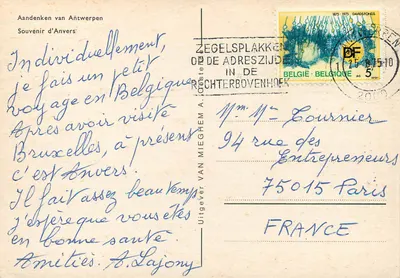 Aandenken van Antwerpen
Souvenir d'Anvers
Individuellement,
je fais un petit
voyage en Belgique
Après avoir visité
Bruxelles, à présent
c'est Anvers.
Il fait assez beau temps
j'espère que vous êtes
en bonne santé.
Amitiés. A. Lajony
Uitgever VAN MIEGHEM A.
ZEGELSPLAKKEN
OP DE ADRESZIJDE
IN DE
RECHTERBOVENHOEK
BELGIE-BELGIQUE
5F
Mr Mme Tournier
94 rue des
Entrepreneurs
75015 Paris
FRANCE